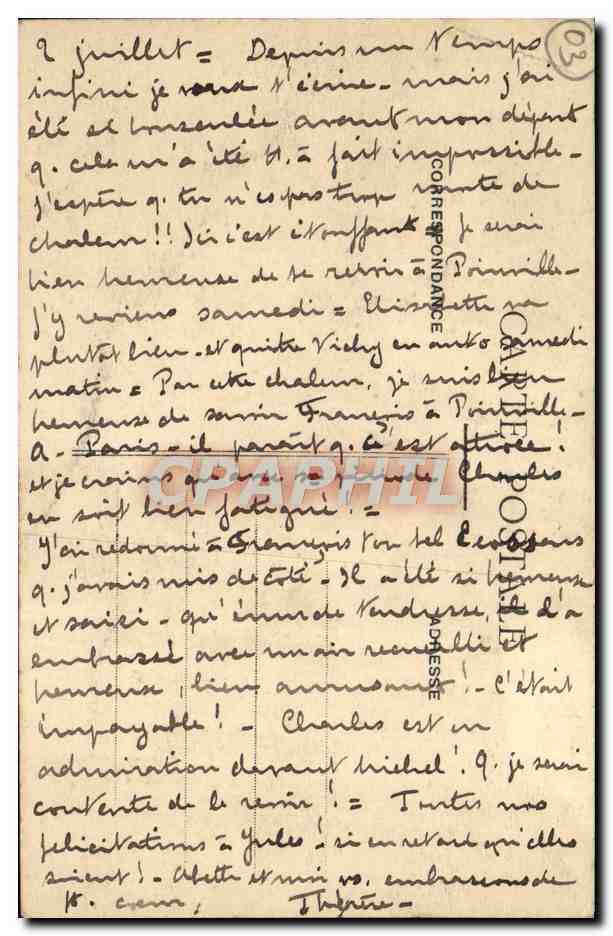 03
2 juillet = Depuis un temps
infini je veux t'écrire - mais j'ai
été si bousculée avant mon départ
q. cela m'a été tt. à fait impossible -
J'espère q. tu n'es pas trop morte de
chaleur !! Ici c'est étouffant. Je serai
bien heureuse de te revoir à
J'y reviens samedi = Elisabeth va
plutôt bien - et quitte Vichy en auto samedi
matin = Par cette chaleur, je suis bien
heureuse de savoir François à
A - Paris - il paraît q. c'est atroce !
et je crains qu'avec sa Charles
en soit bien fatigué ! =
J'ai redonné à François ton bel Ecossais
q. j'avais mis de côté - Il a été si heureux
et saisi - qu'ému de tendresse, il l'a
embrassé avec un air recueilli et
heureux, bien amusant ! - C'était
impayable ! - Charles est en
admiration devant Michel ! Q. je serai
contente de le revoir ! = Toutes nos
félicitations à Jules ! si en retard qu'elles
soient ! - et moi vs. embrassons de
tt. coeur, Thérèse -
CORRESPONDANCE
CARTE POSTALE
ADRESSE
CPAPHIL